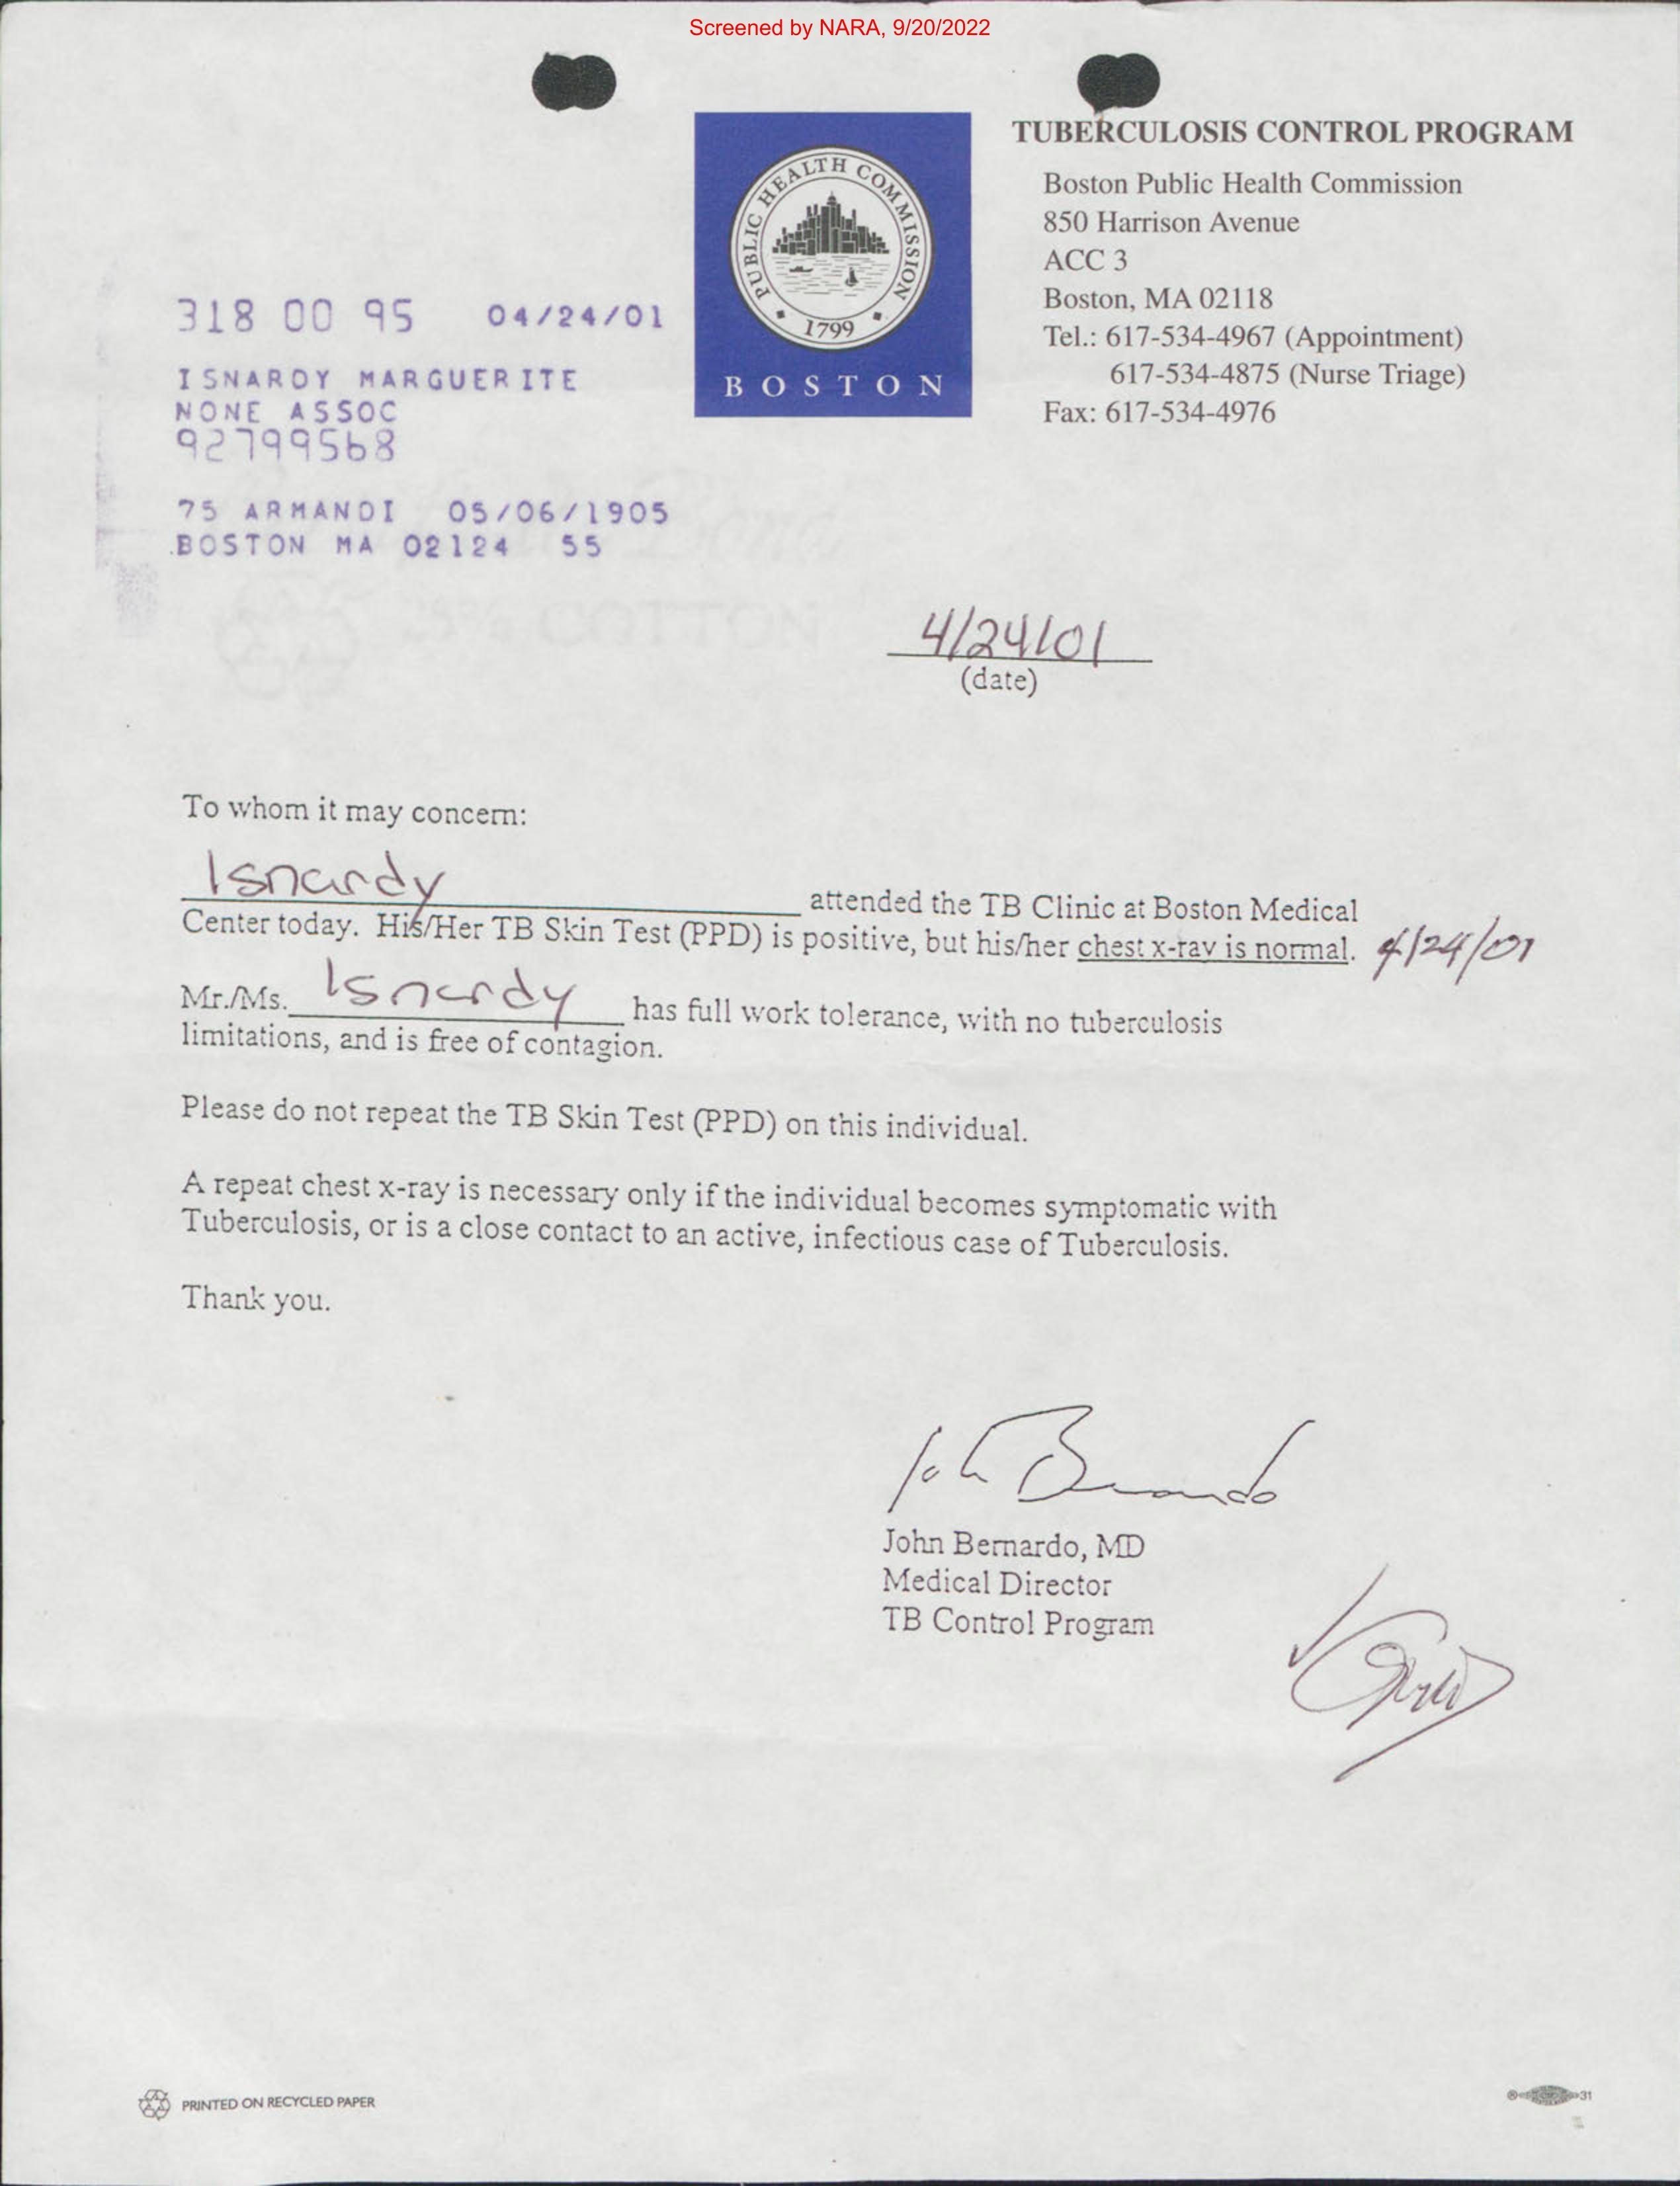 Screened by NARA, 9/20/2022
PUBLIC HEALTH COMMISSION
1799
BOSTON
TUBERCULOSIS CONTROL PROGRAM
Boston Public Health Commission
850 Harrison Avenue
ACC 3
Boston, MA 02118
Tel.: 617-534-4967 (Appointment)
617-534-4875 (Nurse Triage)
Fax: 617-534-4976
318 00 95 04/24/01
ISNARDY MARGUERITE
NONE ASSOC
92799568
75 ARMANDI 05/06/1905
BOSTON MA 02124 55
4/24/01
(date)
To whom it may concern:
Isnardy attended the TB Clinic at Boston Medical
Center today. His/Her TB Skin Test (PPD) is positive, but his/her chest x-ray is normal. 4/24/01
Mr./Ms. Isnardy has full work tolerance, with no tuberculosis
limitations, and is free of contagion.
Please do not repeat the TB Skin Test (PPD) on this individual.
A repeat chest x-ray is necessary only if the individual becomes symptomatic with
Tuberculosis, or is a close contact to an active, infectious case of Tuberculosis.
Thank you.
John Bernardo
John Bernardo, MD
Medical Director
TB Control Program
PRINTED ON RECYCLED PAPER
31